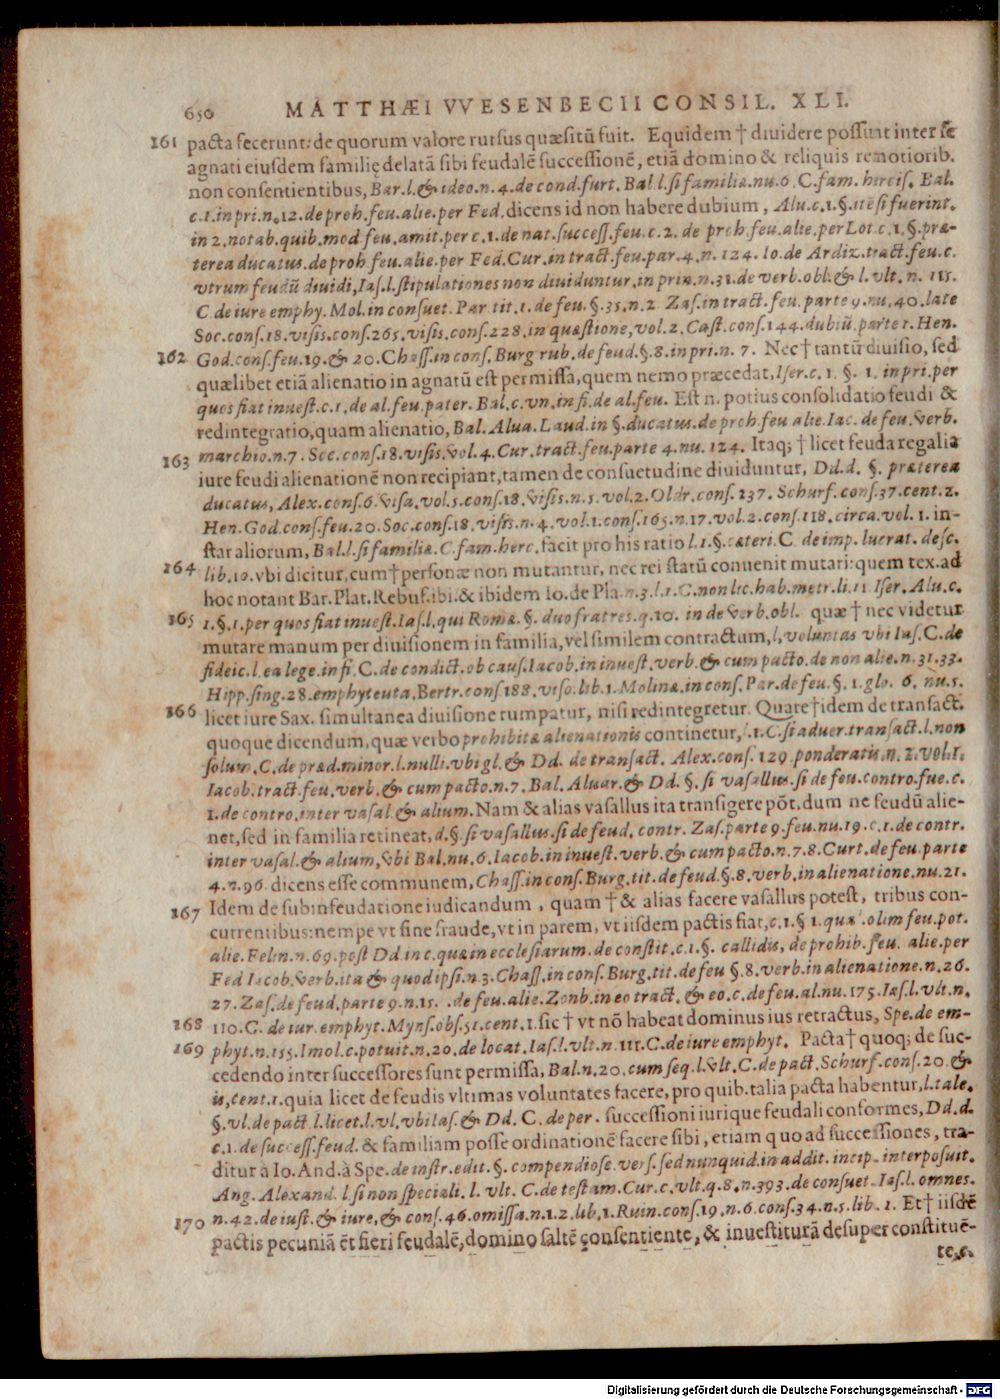 650 MATTHÆI VVESENBECII CONSIL. XLI.
161 pacta fecerunt: de quorum valore rursus quæsitũ fuit. Equidem † diuidere possunt inter se
agnati eiusdem familię delatã sibi feudalẽ successionẽ, etiã domino & reliquis remotiorib.
non consentientibus, Bar. l. & ideo. n. 4. de cond. furt. Bal. l. si familiæ. nu. 6. C. fam. hercis. Bal.
c. 1. in pri. n. 12. de proh. feu. alie. per Fed. dicens id non habere dubium, Alu. c. 1. §. itẽ si fuerint.
in 2. notab. quib. mod. feu. amit. per c. 1. de nat. success. feu. c. 2. de proh. feu. alie. per Lot. c. 1. §. præ-
terea ducatus. de proh. feu. alie. per Fed. Cur. in tract. feu. par. 4. n. 124. Io. de Ardiz. tract. feu. c.
vtrum feudũ diuidi, Ias. l. stipulationes non diuiduntur. in prin. n. 31. de verb. obl. & l. vlt. n. 115.
C. de iure emphy. Mol. in consuet. Par. tit. 1. de feu. §. 35. n. 2. Zas. in tract. feu. parte 9. nu. 40. late
Soc. cons. 18. visis. cons. 265. visis. cons. 228. in quæstione, vol. 2. Cast. cons. 144. dubiũ. parte 1. Hen.
162 God. cons. feu. 19. & 20. Chass. in cons. Burg. rub. de feud. §. 8. in pri. n. 7. Nec † tantũ diuisio, sed
quælibet etiã alienatio in agnatũ est permissa, quem nemo præcedat, Iser. c. 1. §. 1. in pri. per
quos fiat inuest. c. 1. de al. feu. pater. Bal. c. vn. in fi. de al. feu. Est n. potius consolidatio feudi &
redintegratio, quam alienatio, Bal. Alua. Laud. in §. ducatus. de proh. feu alie. Iac. de feu. verb.
163 marchio. n. 7. Soc. cons. 18. visis. vol. 4. Cur. tract. feu. parte 4. nu. 124. Itaq; † licet feuda regalia
iure feudi alienationẽ non recipiant, tamen de consuetudine diuiduntur, Dd. d. §. præterea
ducatus, Alex. cons. 6. visa. vol. 5. cons. 18. visis. n. 5. vol. 2. Oldr. cons. 237. Schurf. cons. 37. cent. 2.
Hen. God. cons. feu. 20. Soc. cons. 18. visis. n. 4. vol. 1. cons. 165. n. 17. vol. 2. cons. 118. circa. vol. 1. in-
star aliorum, Bal. l. si familiæ. C. fam. herc. facit pro his ratio l. 1. §. cæteri. C. de imp. lucrat. desc.
164 lib. 10. vbi dicitur, cum † personæ non mutantur, nec rei statũ conuenit mutari: quem tex. ad
hoc notant Bar. Plat. Rebuf. ibi. & ibidem Io. de Pla. n. 3. l. 1. C. non lic. hab. metr. li. 11. Iser. Alu. c.
165 1. §. 1. per quos fiat inuest. Ias. l. qui Romæ. §. duo fratres. q. 10. in de verb. obl. quæ † nec videtur
mutare manum per diuisionem in familia, vel similem contractum, l. voluntas vbi Ias. C. de
fideic. l. ea lege. in fi. C. de condict. ob caus. Iacob. in inuest. verb. & cum pacto. de non alie. n. 31. 33.
Hipp. sing. 28. emphyteuta. Bertr. cons. 188. viso. lib. 1. Molinæ. in cons. Par. de feu. §. 1. glo. 6. nu. 5.
166 licet iure Sax. simultanea diuisione rumpatur, nisi redintegretur. Quare † idem de transact.
quoque dicendum, quæ verbo prohibitæ alienationis continetur, l. 1. C. si aduer. transact. l. non
solum. C. de præd. minor. l. nulli. vbi gl. & Dd. de transact. Alex. cons. 129. ponderatis. n. 2. vol. 1.
Iacob. tract. feu. verb. & cum pacto. n. 7. Bal. Aluar. & Dd. §. si vasallus. si de feu. contro. fue. c.
1. de contro. inter vasal. & alium. Nam & alias vasallus ita transigere põt, dum ne feudũ alie-
net, sed in familia retineat, d. §. si vasallus. si de feud. contr. Zas. parte 9. feu. nu. 19. c. 1. de contr.
inter vasal. & alium, vbi Bal. nu. 6. Iacob. in inuest. verb. & cum pacto. n. 7. 8. Curt. de feu. parte
4. n. 96. dicens esse communem, Chass. in cons. Burg. tit. de feud. §. 8. verb. in alienatione. nu. 21.
167 Idem de subinfeudatione iudicandum, quam † & alias facere vasallus potest, tribus con-
currentibus: nempe vt sine fraude, vt in parem, vt iisdem pactis fiat, c. 1. §. 1. quæ olim feu. pot.
alie. Felin. n. 69. post Dd. in c. quæ in ecclesiarum. de constit. c. 1. §. callidis, de prohib. feu. alie. per
Fed. Iacob. verb. ita & quod ipsi. n. 3. Chass. in cons. Burg. tit. de feu. §. 8. verb. in alienatione. n. 26.
27. Zas. de feud. parte 9. n. 15. de feu. alie. Zonb. in eo tract. & eo. c. de feu. al. nu. 175. Ias. l. vlt. n.
168 110. C. de iur. emphyt. Myns. obs. 51. cent. 1. sic † vt nõ habeat dominus ius retractus, Spe. de em-
169 phyt. n. 155. Imol. c. potuit. n. 20. de locat. Ias. l. vlt. n. 111. C. de iure emphyt. Pacta † quoq; de suc-
cedendo inter successores sunt permissa, Bal. n. 20. cum seq. l. vlt. C. de pact. Schurf. cons. 20. &
is, cent. 1. quia licet de feudis vltimas voluntates facere, pro quib. talia pacta habentur, l. tale.
§. vl. de pact. l. licet. l. vl. vbi Ias. & Dd. C. de per. successioni iurique feudali conformes, Dd. d.
c. 1. de success. feud. & familiam posse ordinationẽ facere sibi, etiam quo ad successiones, tra-
ditur à Io. And. à Spe. de instr. edit. §. compendiose. vers. sed nunquid. in addit. incip. interposuit.
Ang. Alexand. l. si non speciali. l. vlt. C. de testam. Cur. c. vlt. q. 8. n. 393. de consuet. Ias. l. omnes.
n. 42. de iust. & iure, & cons. 46. omissa. n. 1. 2. lib. 1. Ruin. cons. 19. n. 6. cons. 34. n. 5. lib. 1. Et † iisdẽ
170 pactis pecuniã ẽt fieri feudalẽ, domino saltẽ consentiente, & inuestiturã desuper constituẽ-
te, c.
Digitalisierung gefördert durch die Deutsche Forschungsgemeinschaft - DFG